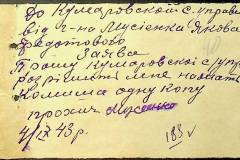 До Кумаровской с/управи
від г-на Мусіенка Якова
Федотового
Заява
Прошу Кумаровской с/упр
розрішить мне
Комиша одну копу
прохач Мусиенко
4/IX 43 р.
188